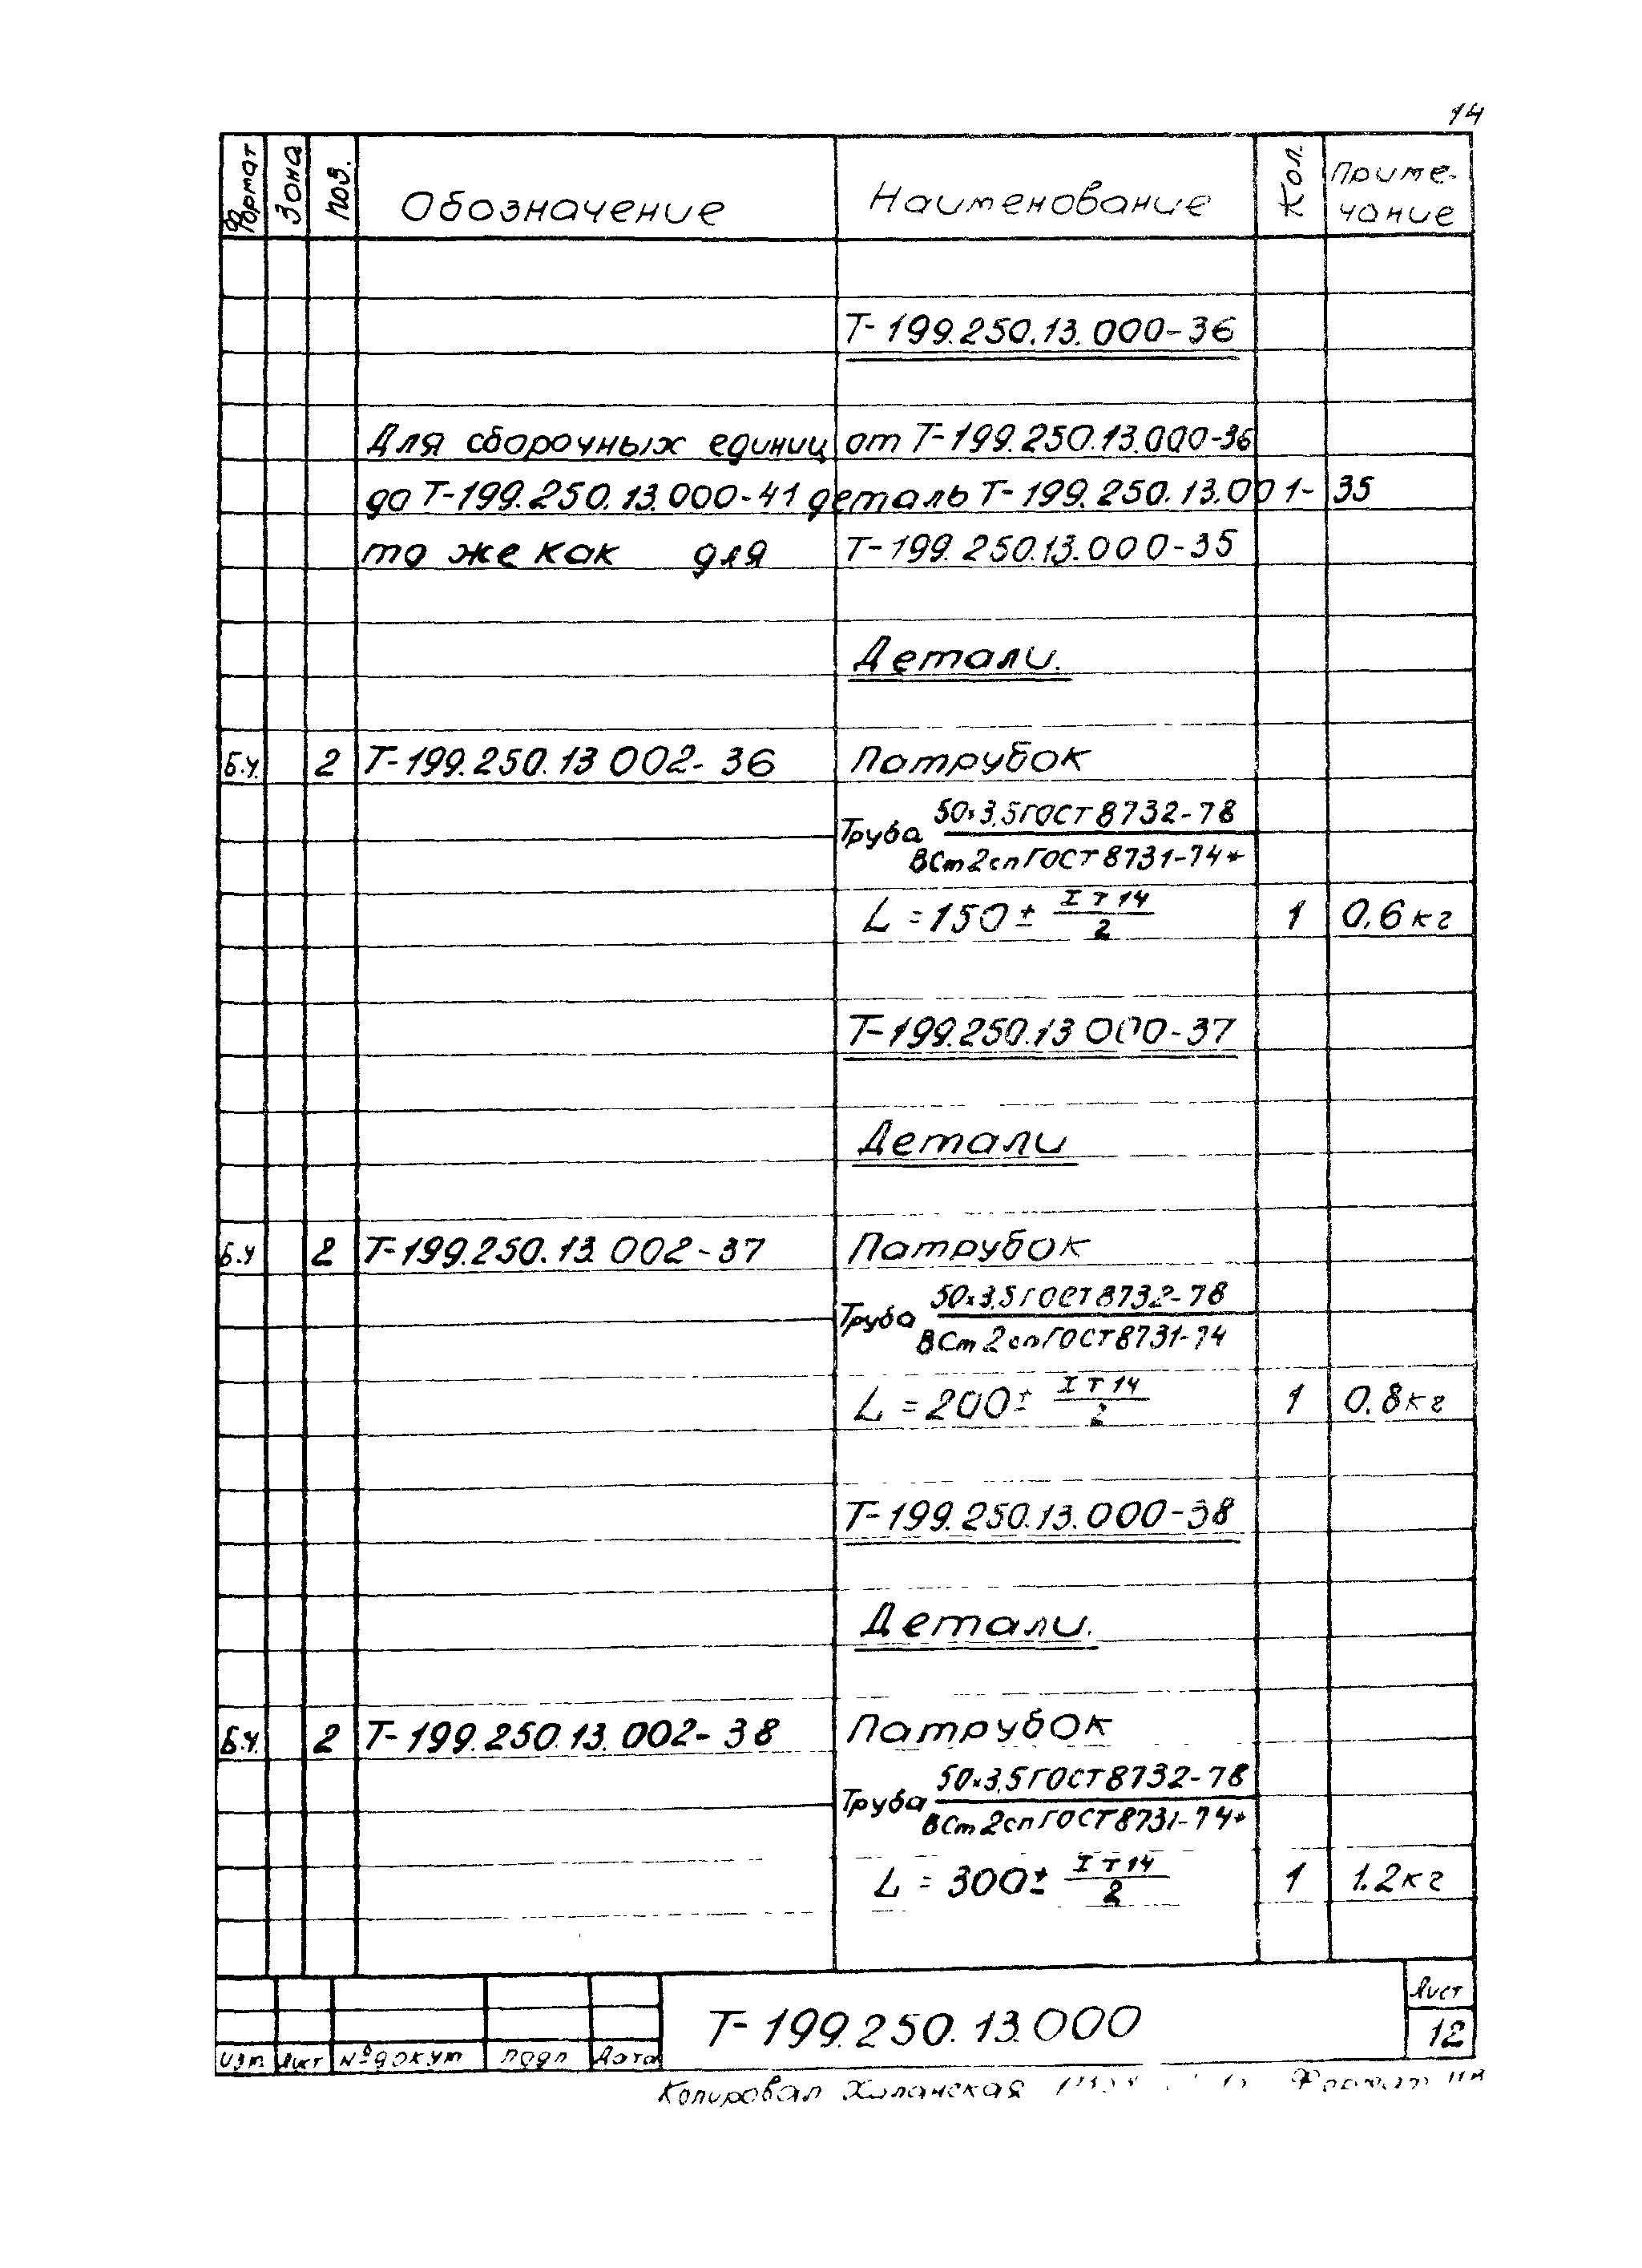 14
Формат Зона Поз. Обозначение Наименование Кол. Приме-
чание
Т-199.250.13.000-36
Для сборочных единиц от Т-199.250.13.000-36
до Т-199.250.13.000-41 деталь Т-199.250.13.001-35
то же как для Т-199.250.13.000-35
Детали.
Б.Ч. 2 Т-199.250.13 002-36 Патрубок
Труба 50×3,5 ГОСТ 8732-78
ВСт2сп ГОСТ 8731-74*
L = 150 ± IT14/2 1 0.6 кг
Т-199.250.13 000-37
Детали
Б.Ч 2 Т-199.250.13.002-37 Патрубок
Труба 50×3,5 ГОСТ 8732-78
ВСт2сп ГОСТ 8731-74
L = 200 ± IT14/2 1 0.8 кг
Т-199.250.13.000-38
Детали.
Б.Ч. 2 Т-199.250.13.002-38 Патрубок
Труба 50×3,5 ГОСТ 8732-78
ВСт2сп ГОСТ 8731-74*
L = 300 ± IT14/2 1 1.2 кг
Т-199.250.13.000
Лист
12
Изм Лист № докум Подп Дата
Копировал Формат